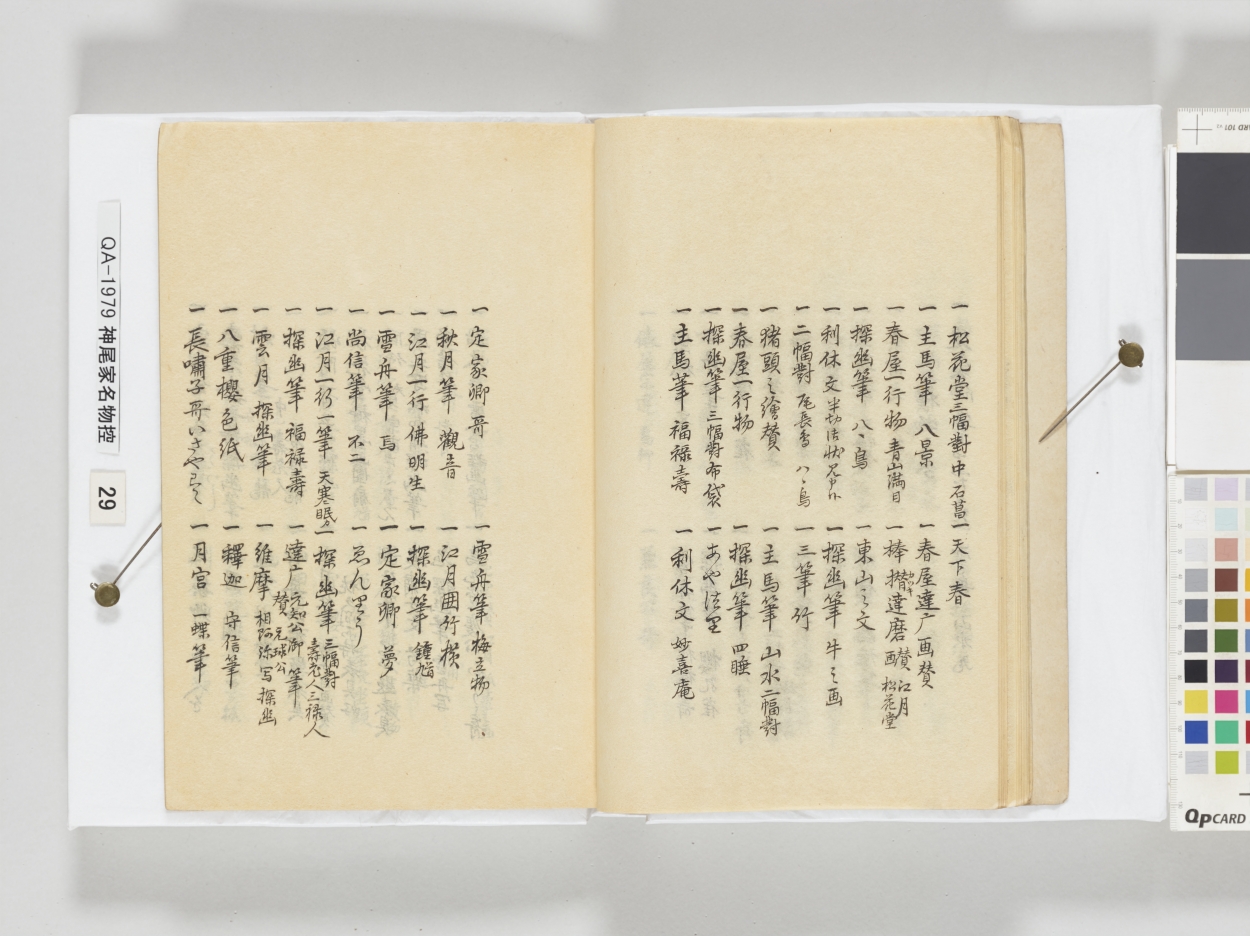 一 松花堂三幅對 中 石菖
一 天下春
一 主馬筆 八景
一 春屋達广画賛
一 春屋一行物 青山満目
一 棒擔達磨画賛 江月 松花堂
一 探幽筆 八〻鳥
一 東山之文
一 利休文 半切
一 探幽筆 牛之画
一 二幅對 尾長鳥 八〻鳥
一 三筆 竹
一 猪頭之繪賛
一 主馬筆 山水二幅對
一 春屋一行物
一 探幽筆 四睡
一 探幽筆 三幅對 布袋
一 主馬筆 福禄壽
一 利休文 妙喜庵
一 定家卿哥
一 雪舟筆 梅立物
一 秋月筆 觀音
一 江月一行 佛明生
一 探幽筆 鍾馗
一 雪舟筆 馬
一 定家卿 夢
一 尚信筆 不二
一 江月一行一筆 天寒
一 探幽筆 三幅對
一 探幽筆 福禄壽
一 達广 元知公御筆 賛
一 雲月 探幽筆
一 維摩 相阿弥写 探幽
一 八重櫻色紙
一 釋迦 守信筆
一 長嘯子哥
一 月宮 一蝶筆
QA-1979 神尾家名物控
29
QPCARD